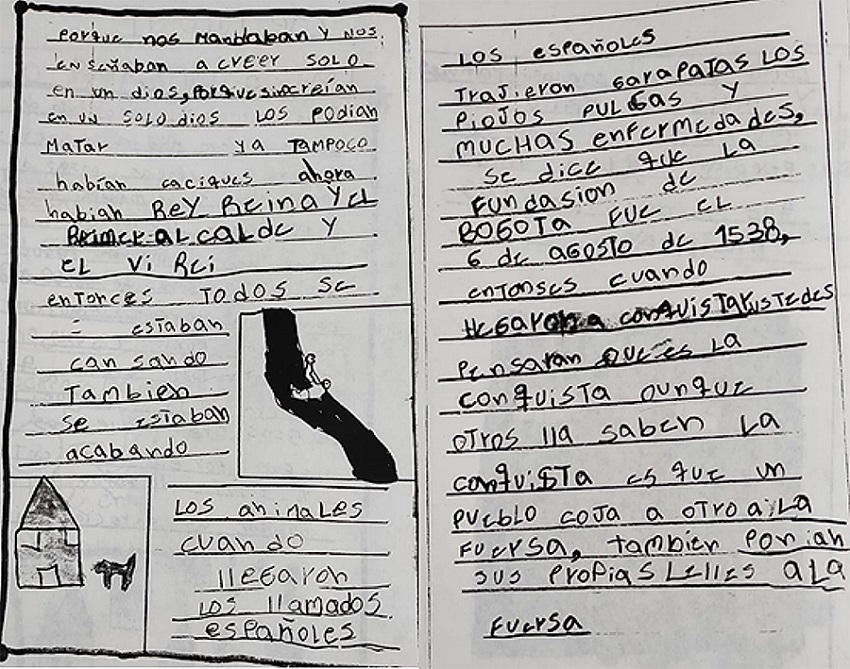 Porque nos mandaban y nos
enseñaban a creer solo
en un dios, porque si no creían
en un solo dios los podian
matar ya tampoco
habían caciques ahora
habian Rey Reina y el
Primer alcalde y
el vi Rei
entonces todos se
estaban
cansando
Tambien
se estaban
acabando
Los animales
cuando
llegaron
los llamados
españoles
Los españoles
Trajieron garapatas los
Piojos Pulgas y
muchas enfermedades,
se dice que la
Fundasion de
BOGOTA FUE EL
6 de agosto de 1538,
entonses cuando
llegaron a conquistar ustedes
Pensaran que es la
conquista ounque
otros lla saben la
conquista es que un
pueblo coja a otro a la
Fuersa, tambien ponian
sus propias lelles a la
Fuersa